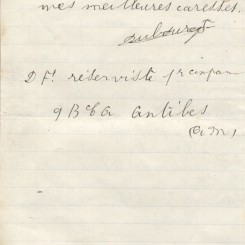 mes meilleures caresses.
Dubourgt
D Ft réserviste 1re compan
9 BCA antibes
(A.M)